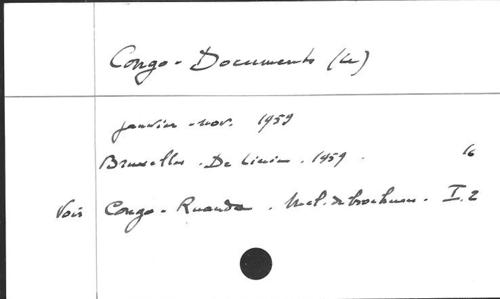 Congo - Documents (Le)
janvier - nov. 1959
Bruxelles - De Linie - 1959. 16
Voir Congo - Ruanda. Mel. de brochures - I.2